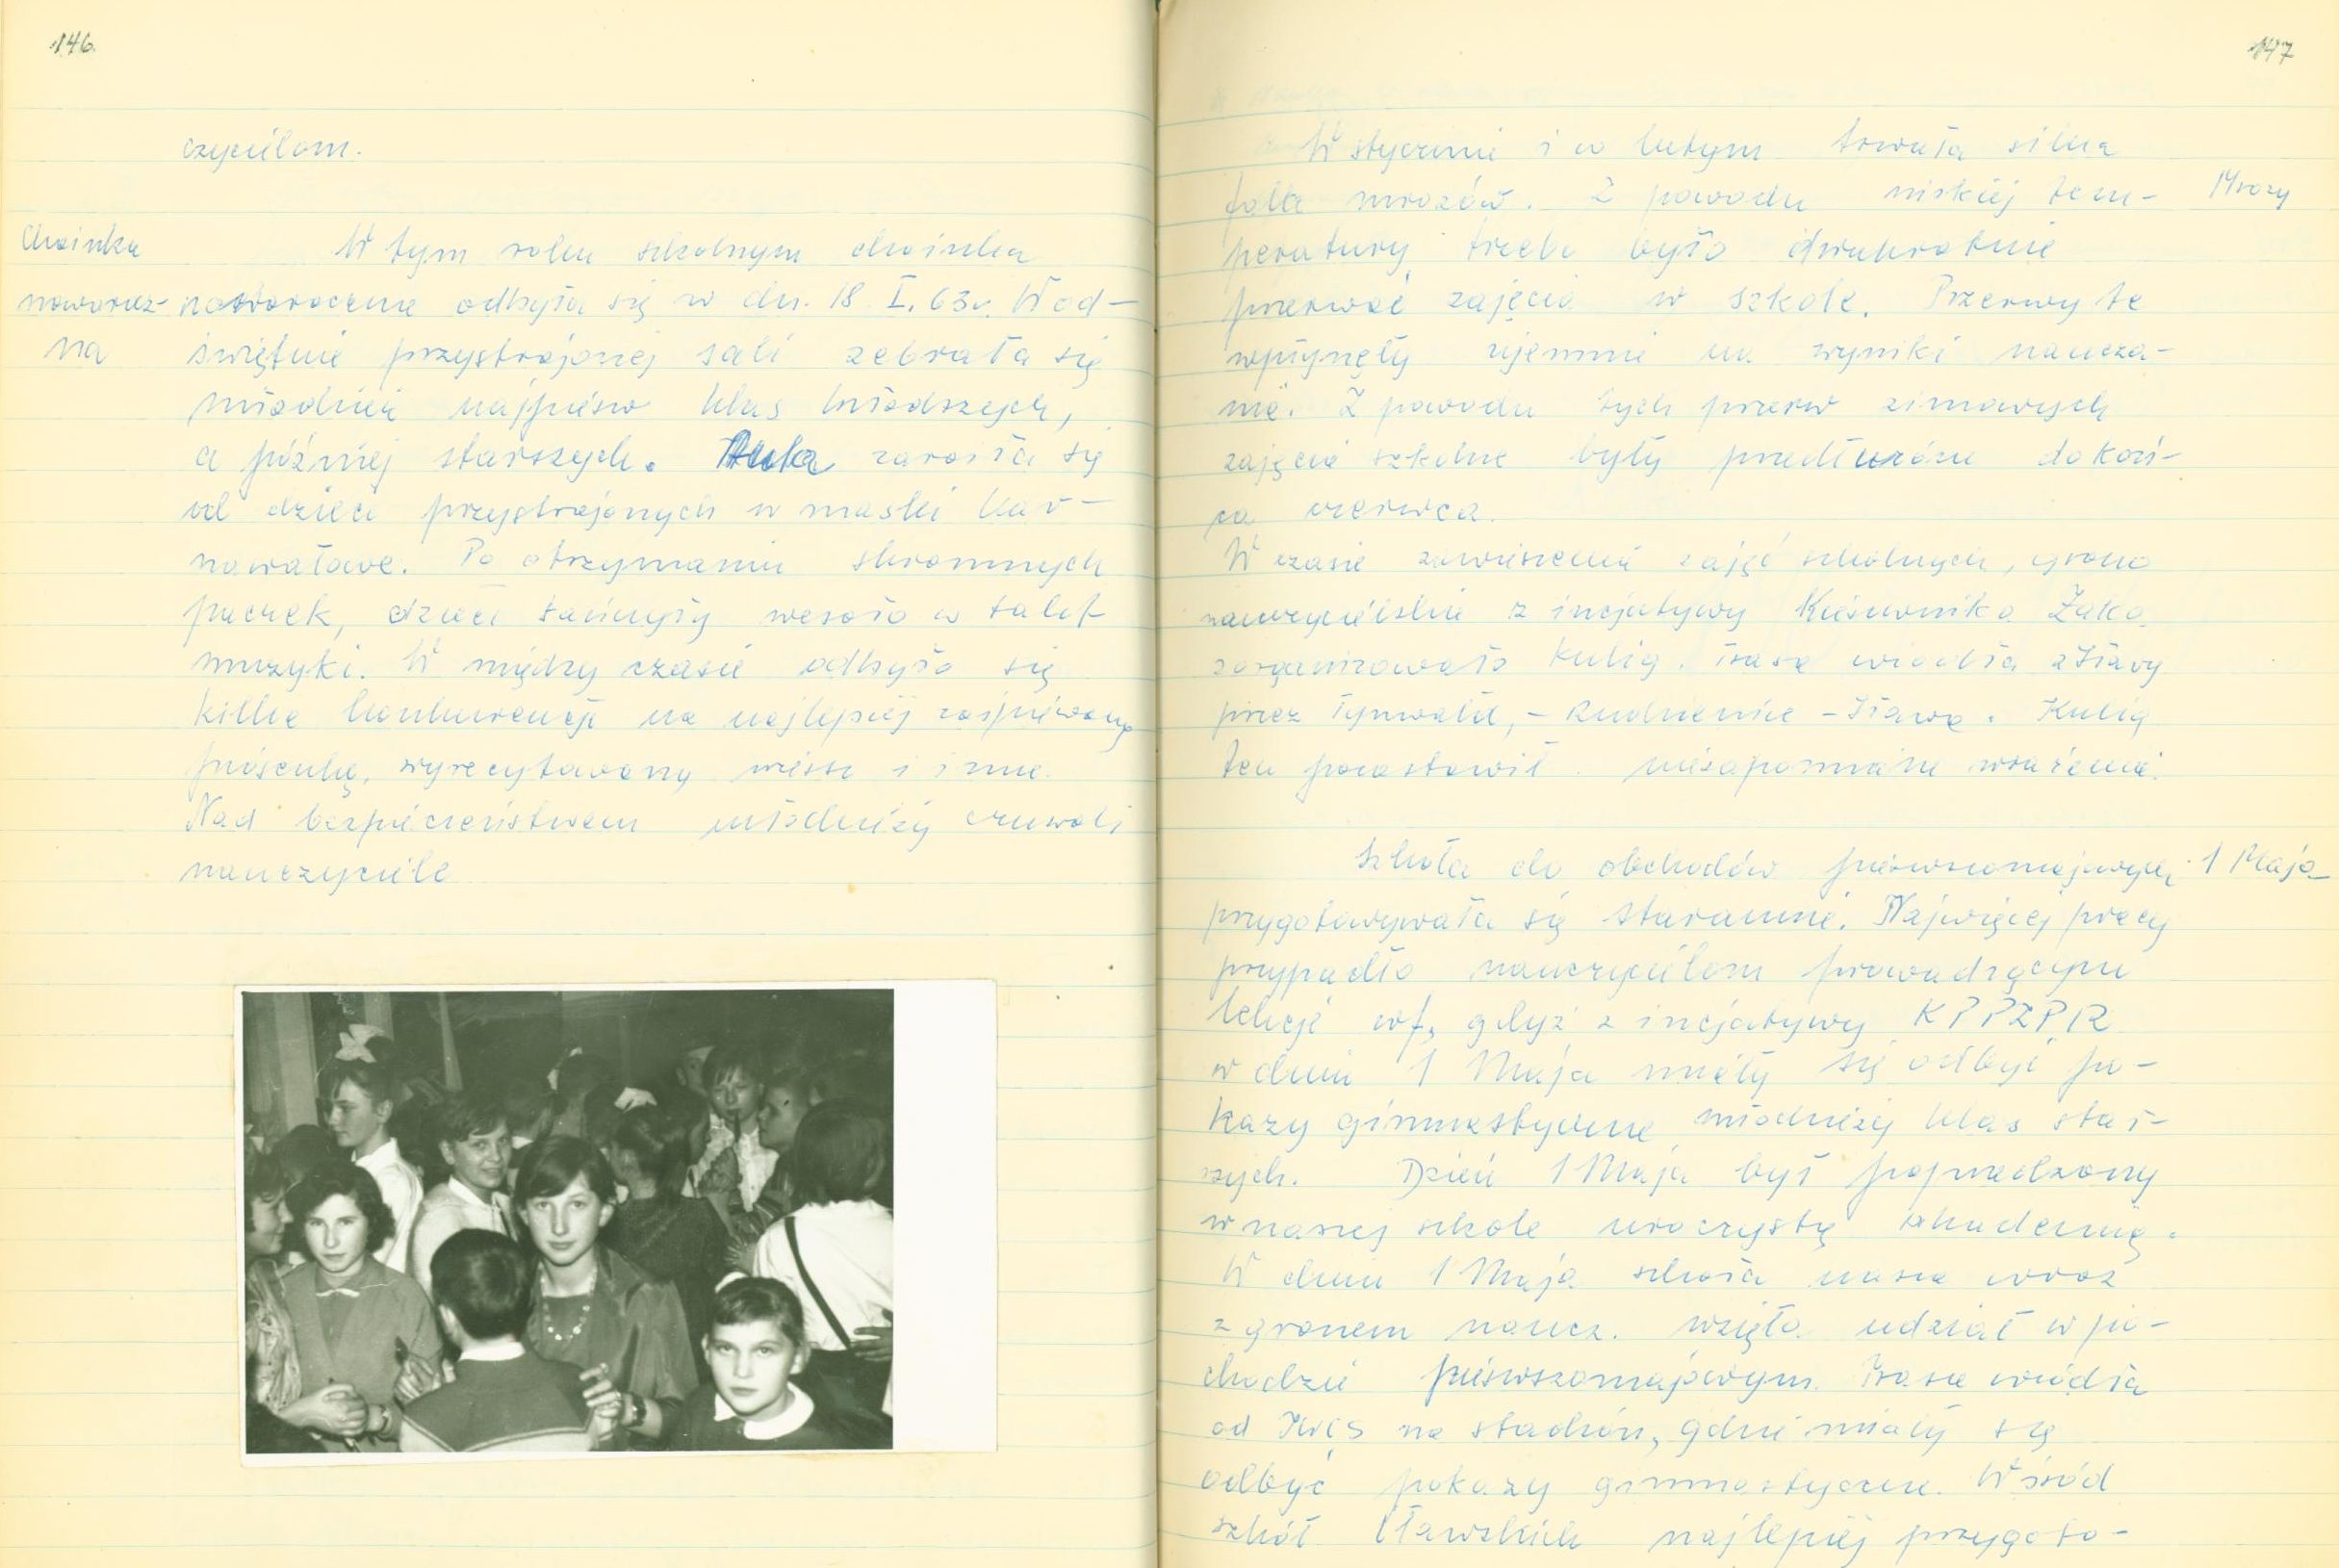 146.
czycielom.
Choinka
noworocz-
na
W tym roku szkolnym choinka
noworoczna odbyła się w dn. 18 I. 63r. W od-
świętnie przystrojonej sali zebrała się
młodzież najpierw klas młodszych,
a później starszych. Aula zaroiła się
od dzieci przystrojonych w maski kar-
nawałowe. Po otrzymaniu skromnych
paczek, dzieci tańczyły wesoło w takt
muzyki. W między czasie odbyło się
kilka konkurencji na najlepiej zaśpiewaną
piosenkę, wyrecytowany wiersz i inne.
Nad bezpieczeństwem młodzieży czuwali
nauczyciele
147
Mrozy
W styczniu i w lutym trwała silna
fala mrozów. Z powodu niskiej tem-
peratury trzeba było dwukrotnie
przerwać zajęcia w szkole. Przerwy te
wpłynęły ujemnie na wyniki naucza-
nia. Z powodu tych przerw zimowych
zajęcia szkolne były przedłużone do koń-
ca czerwca.
W czasie zawieszenia zajęć szkolnych, grono
nauczycielskie z incjatywy Kierownika Żaka
zorganizowało kulig. Trasa wiodła z Iławy
przez Tynwałd, - Rudzienice - Iława. Kulig
ten pozostawił niezapomniane wrażenia.
1 Maja
Szkoła do obchodów pierwszomajowych
przygotowywała się starannie. Najwięcej pracy
przypadło nauczycielom prowadzącym
lekcje wf, gdyż z incjatywy KPPZPR
w dniu 1 Maja miały się odbyć po-
kazy gimnastyczne młodzieży klas star-
szych. Dzień 1 Maja był poprzedzony
w naszej szkole uroczystą akademią.
W dniu 1 Maja szkoła nasza wraz
z gronem naucz. wzięła udział w po-
chodzie pierwszomajowym. Trasa wiodła
od na stadion, gdzie miały się
odbyć pokazy gimnastyczne. Wśród
szkół Iławskich najlepiej przygoto-